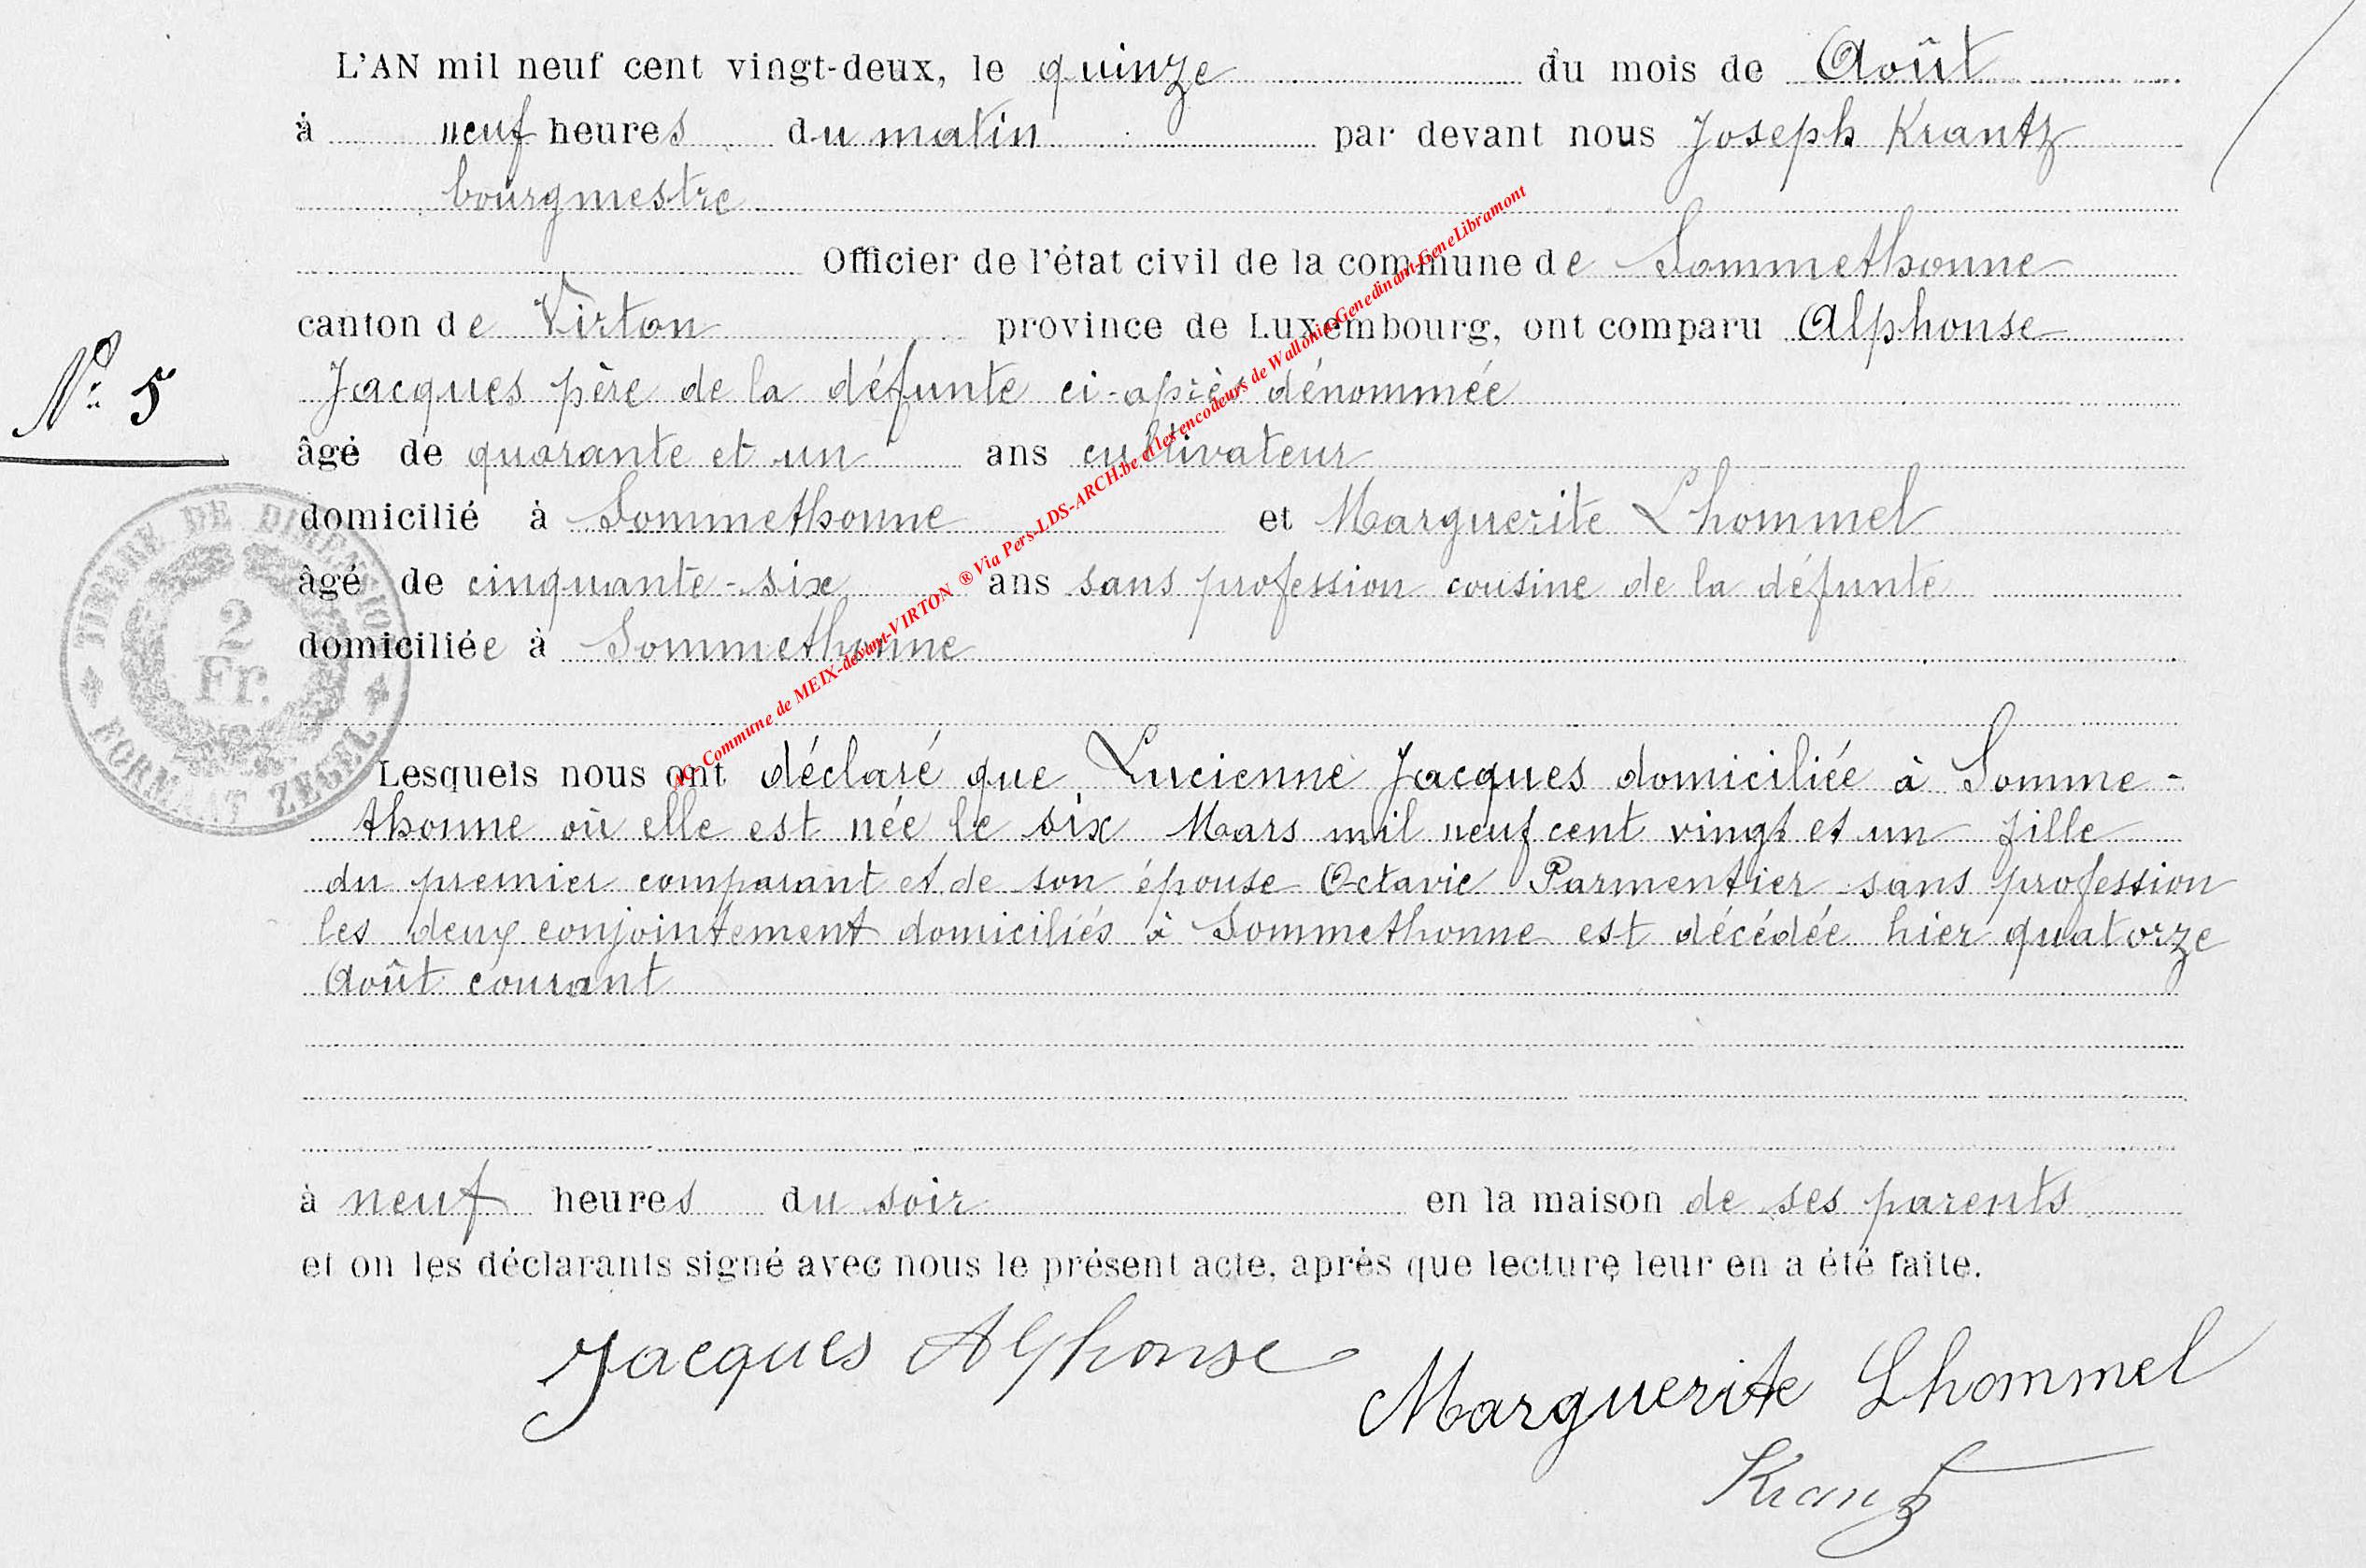 L'AN mil neuf cent vingt-deux, le quinze du mois de Août
à neuf heures du matin par devant nous Joseph Krantz
bourgmestre
Officier de l'état civil de la commune de Sommethonne
canton de Virton province de Luxembourg, ont comparu Alphonse
N° 5
Jacques père de la défunte ci-après dénommée
âgé de quarante et un ans cultivateur
domicilié à Sommethonne et Marguerite Lhommel
âgé de cinquante-six ans sans profession cousine de la défunte
domiciliée à Sommethonne
TIMBRE DE DIMENSION
2
Fr.
FORMAAT ZEGEL
AG. Commune de MEIX-devant-VIRTON ® Via Pers-LDS-ARCH.be et les encodeurs de Wallonia-Genedinant-GeneLibramont
Lesquels nous ont déclaré que Lucienne Jacques domiciliée à Somme-
thonne où elle est née le six Mars mil neuf cent vingt et un fille
du premier comparant et de son épouse Octavie Parmentier sans profession
les deux conjointement domiciliés à Sommethonne est décédée hier quatorze
Août courant
à neuf heures du soir en la maison de ses parents
et on les déclarants signé avec nous le présent acte, après que lecture leur en a été faite.
Jacques Alphonse
Marguerite Lhommel
Krantz